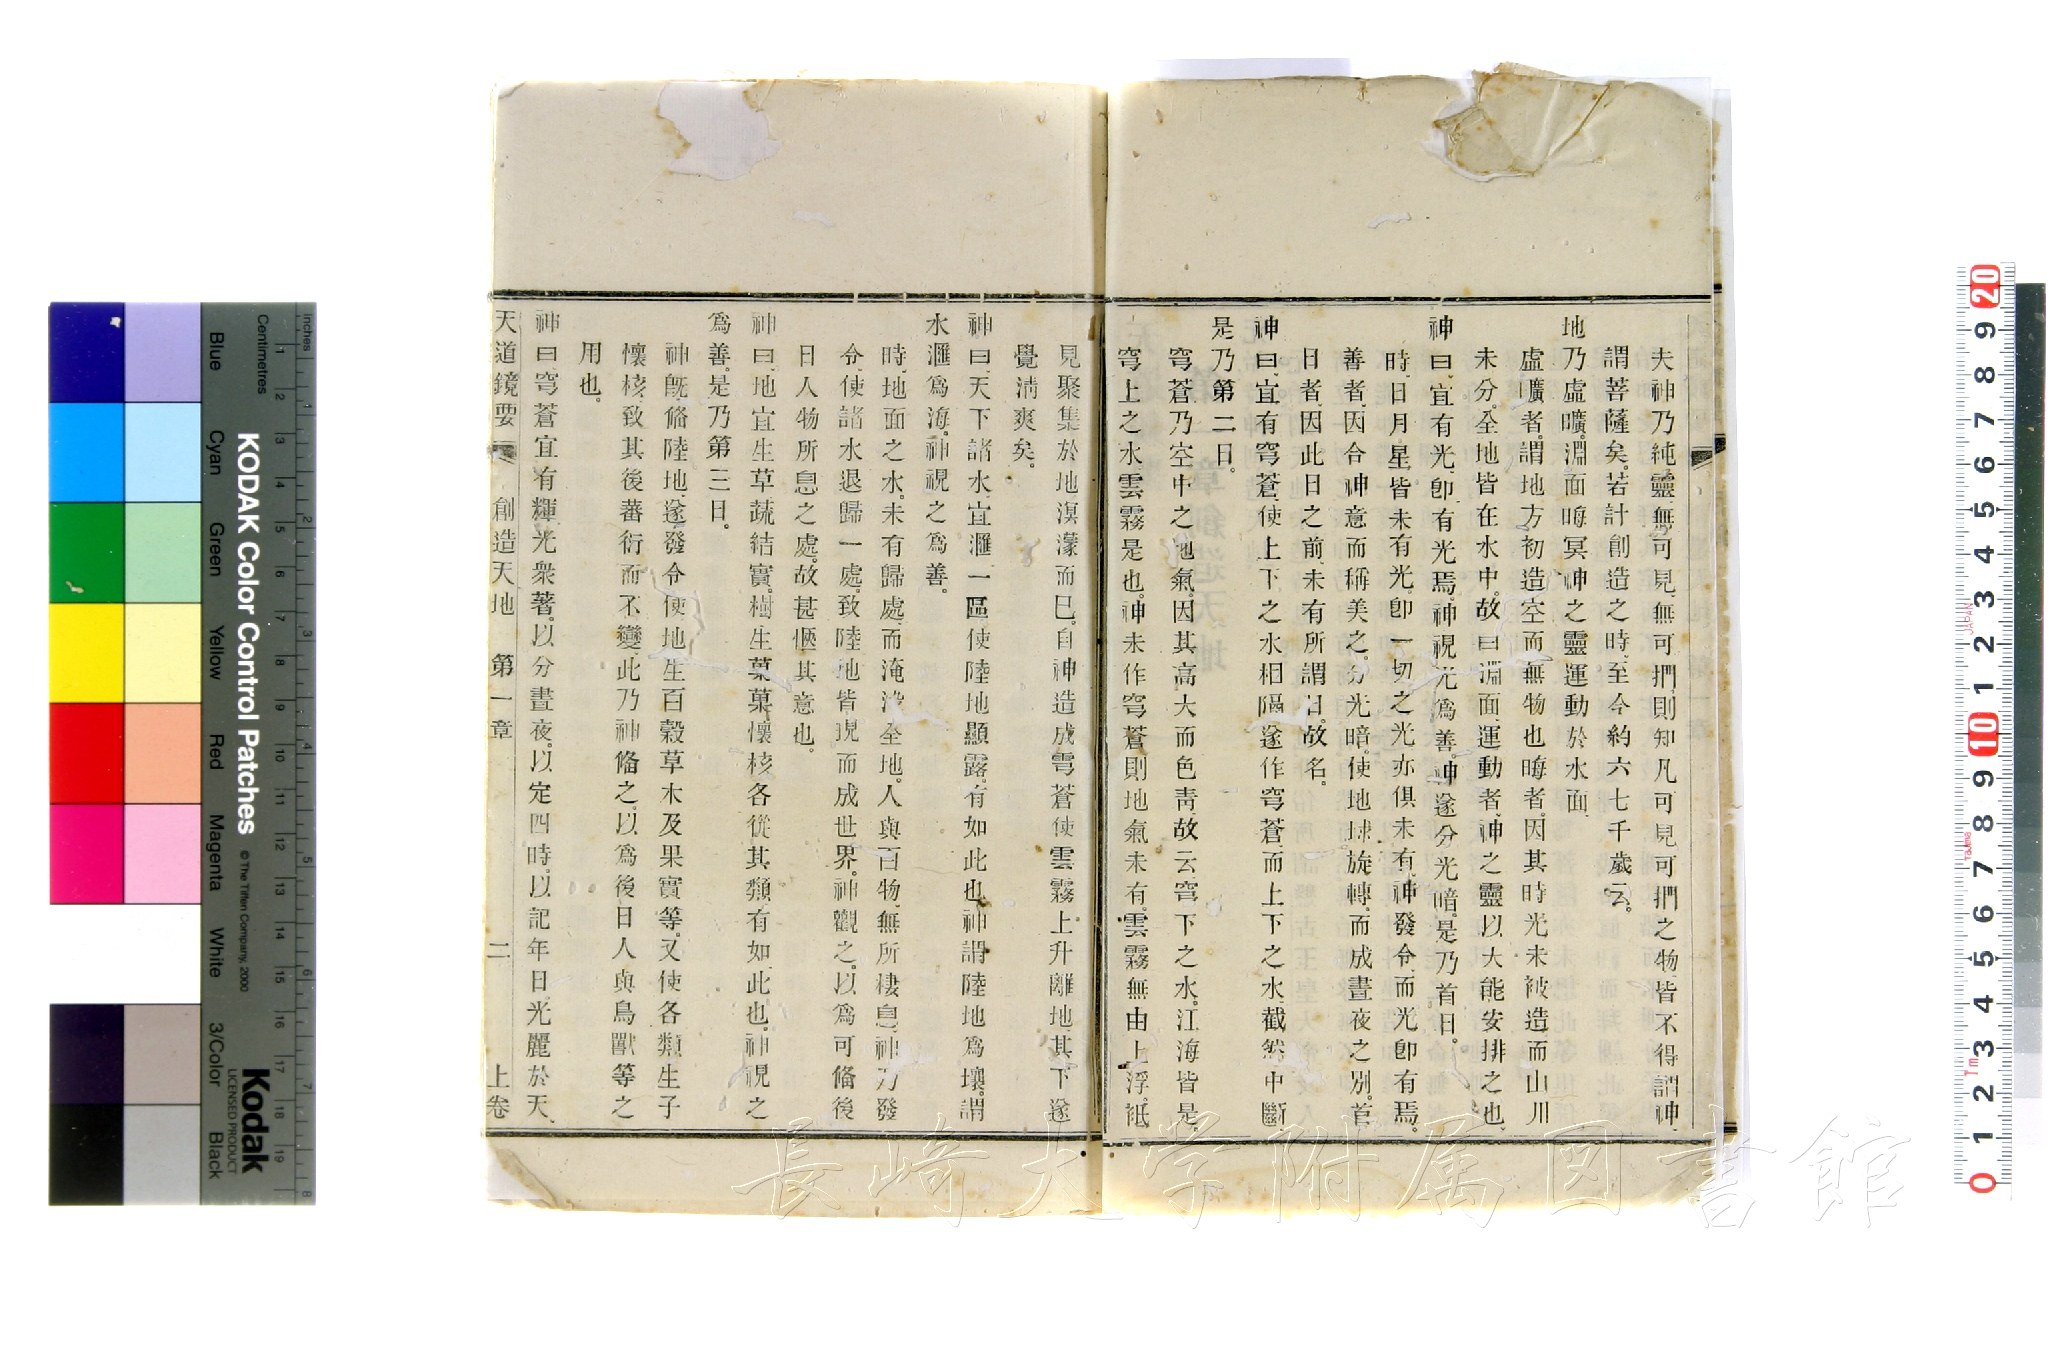 夫神乃純靈、無可見、無可捫、則知凡可見可捫之物、皆不得謂神、
謂菩薩矣。若計創造之時、至今約六七千歲云。
地乃虛曠。淵面晦冥、神之靈運動於水面、
虛曠者、謂地方初造、空而無物也。晦者、因其時光未被造、而山川
未分。全地皆在水中。故曰淵面、運動者、神之靈以大能安排之也、
神曰、宜有光、卽有光焉。神視光爲善、神遂分光暗、是乃首日。
時、日月星、皆未有光、卽一切之光亦俱未有、神發令、而光卽有焉。
善者、因合神意而稱美之。分光暗、使地球旋轉、而成晝夜之別。首
日者、因此日之前、未有所謂日、故名。
神曰、宜有穹蒼、使上下之水相隔、遂作穹蒼、而上下之水、截然中斷
是乃第二日。
穹蒼乃空中之地氣、因其高大而色青、故云穹下之水、江海皆是、
穹上之水、雲霧是也。神未作穹蒼、則地氣未有、雲霧無由上浮、祗
見聚集於地、溟濛而已。自神造成穹蒼、使雲霧上升離地、其下遂
覺淸爽矣。
神曰、天下諸水、宜滙一區、使陸地顯露、有如此也。神謂陸地爲壤、謂
水滙爲海、神視之爲善。
時、地面之水、未有歸處、而淹沒全地。人與百物、無所棲息、神乃發
令、使諸水退歸一處、致陸地皆現而成世界、神觀之、以爲可備後
日人物所息之處、故甚愜其意也。
神曰、地宜生草蔬結實、樹生菓、菓懷核、各從其類、有如此也。神視之
爲善。是乃第三日。
神旣備陸地、遂發令使地生百穀草木及果實等、又使各類生子
懷核、致其後蕃衍而不變、此乃神備之、以爲後日人與鳥獸等之
用也。
神曰、穹蒼宜有輝光衆著、以分晝夜、以定四時、以記年日、光麗於天、
天道鏡要 創造天地 第一章 二 上卷
長崎大学附属図書館
KODAK Color Control Patches © The Tiffen Company, 2000
Kodak LICENSED PRODUCT
Inches 1 2 3 4 5 6 7 8
Centimetres 1 2 3 4 5 6 7 8 9 10 11 12 13 14 15 16 17 18 19
Blue Cyan Green Yellow Red Magenta White 3/Color Black
20 9 8 7 6 5 4 3 2 1 10 9 8 7 6 5 4 3 2 1 0
JAPAN
Tajima
7m